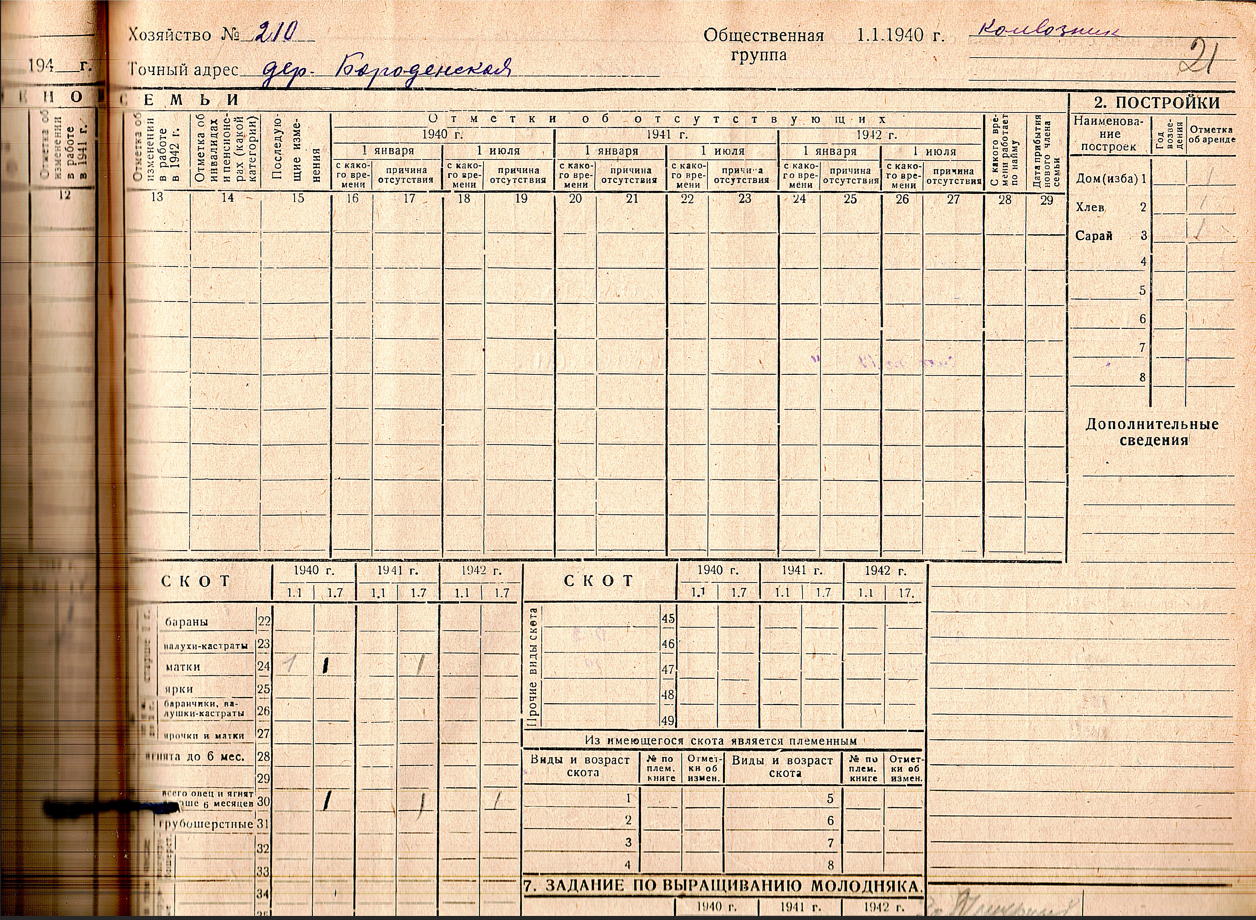 Хозяйство № 210
Общественная группа
1.1.1940 г. колхозник
21
194 г.
Точный адрес дер. Бороденская
СЕМЬИ
Отметка об изменении в работе в 1941 г.
12
Отметка об изменении в работе в 1942 г.
Отметка об инвалидах и пенсионерах (какой категории)
Последующие изменения
Отметки об отсутствующих
1940 г. 1941 г. 1942 г.
1 января 1 июля 1 января 1 июля 1 января 1 июля
с какого времени причина отсутствия с какого времени причина отсутствия с какого времени причина отсутствия с какого времени причина отсутствия с какого времени причина отсутствия с какого времени причина отсутствия
С какого времени работает по найму
Дата прибытия нового члена семьи
13 14 15 16 17 18 19 20 21 22 23 24 25 26 27 28 29
2. ПОСТРОЙКИ
Наименование построек
Год возведения
Отметка об аренде
Дом (изба) 1 1
Хлев 2 1
Сарай 3 1
4
5
6
7
8
Дополнительные сведения
СКОТ 1940 г. 1941 г. 1942 г.
1.1 1.7 1.1 1.7 1.1 1.7
бараны 22
валухи-кастраты 23
матки 24 1 1 1
ярки 25
баранчики, валушки-кастраты 26
ярочки и матки 27
ягнята до 6 мес. 28
29
всего овец и ягнят старше 6 месяцев 30 1 1 1
грубошерстные 31
32
33
34
35
СКОТ 1940 г. 1941 г. 1942 г.
1.1 1.7 1.1 1.7 1.1 17.
Прочие виды скота
45
46
47
48
49
Из имеющегося скота является племенным
Виды и возраст скота № по плем. книге Отметки об измен. Виды и возраст скота № по плем. книге Отметки об измен.
1 5
2 6
3 7
4 8
7. ЗАДАНИЕ ПО ВЫРАЩИВАНИЮ МОЛОДНЯКА.
1940 г. 1941 г. 1942 г.